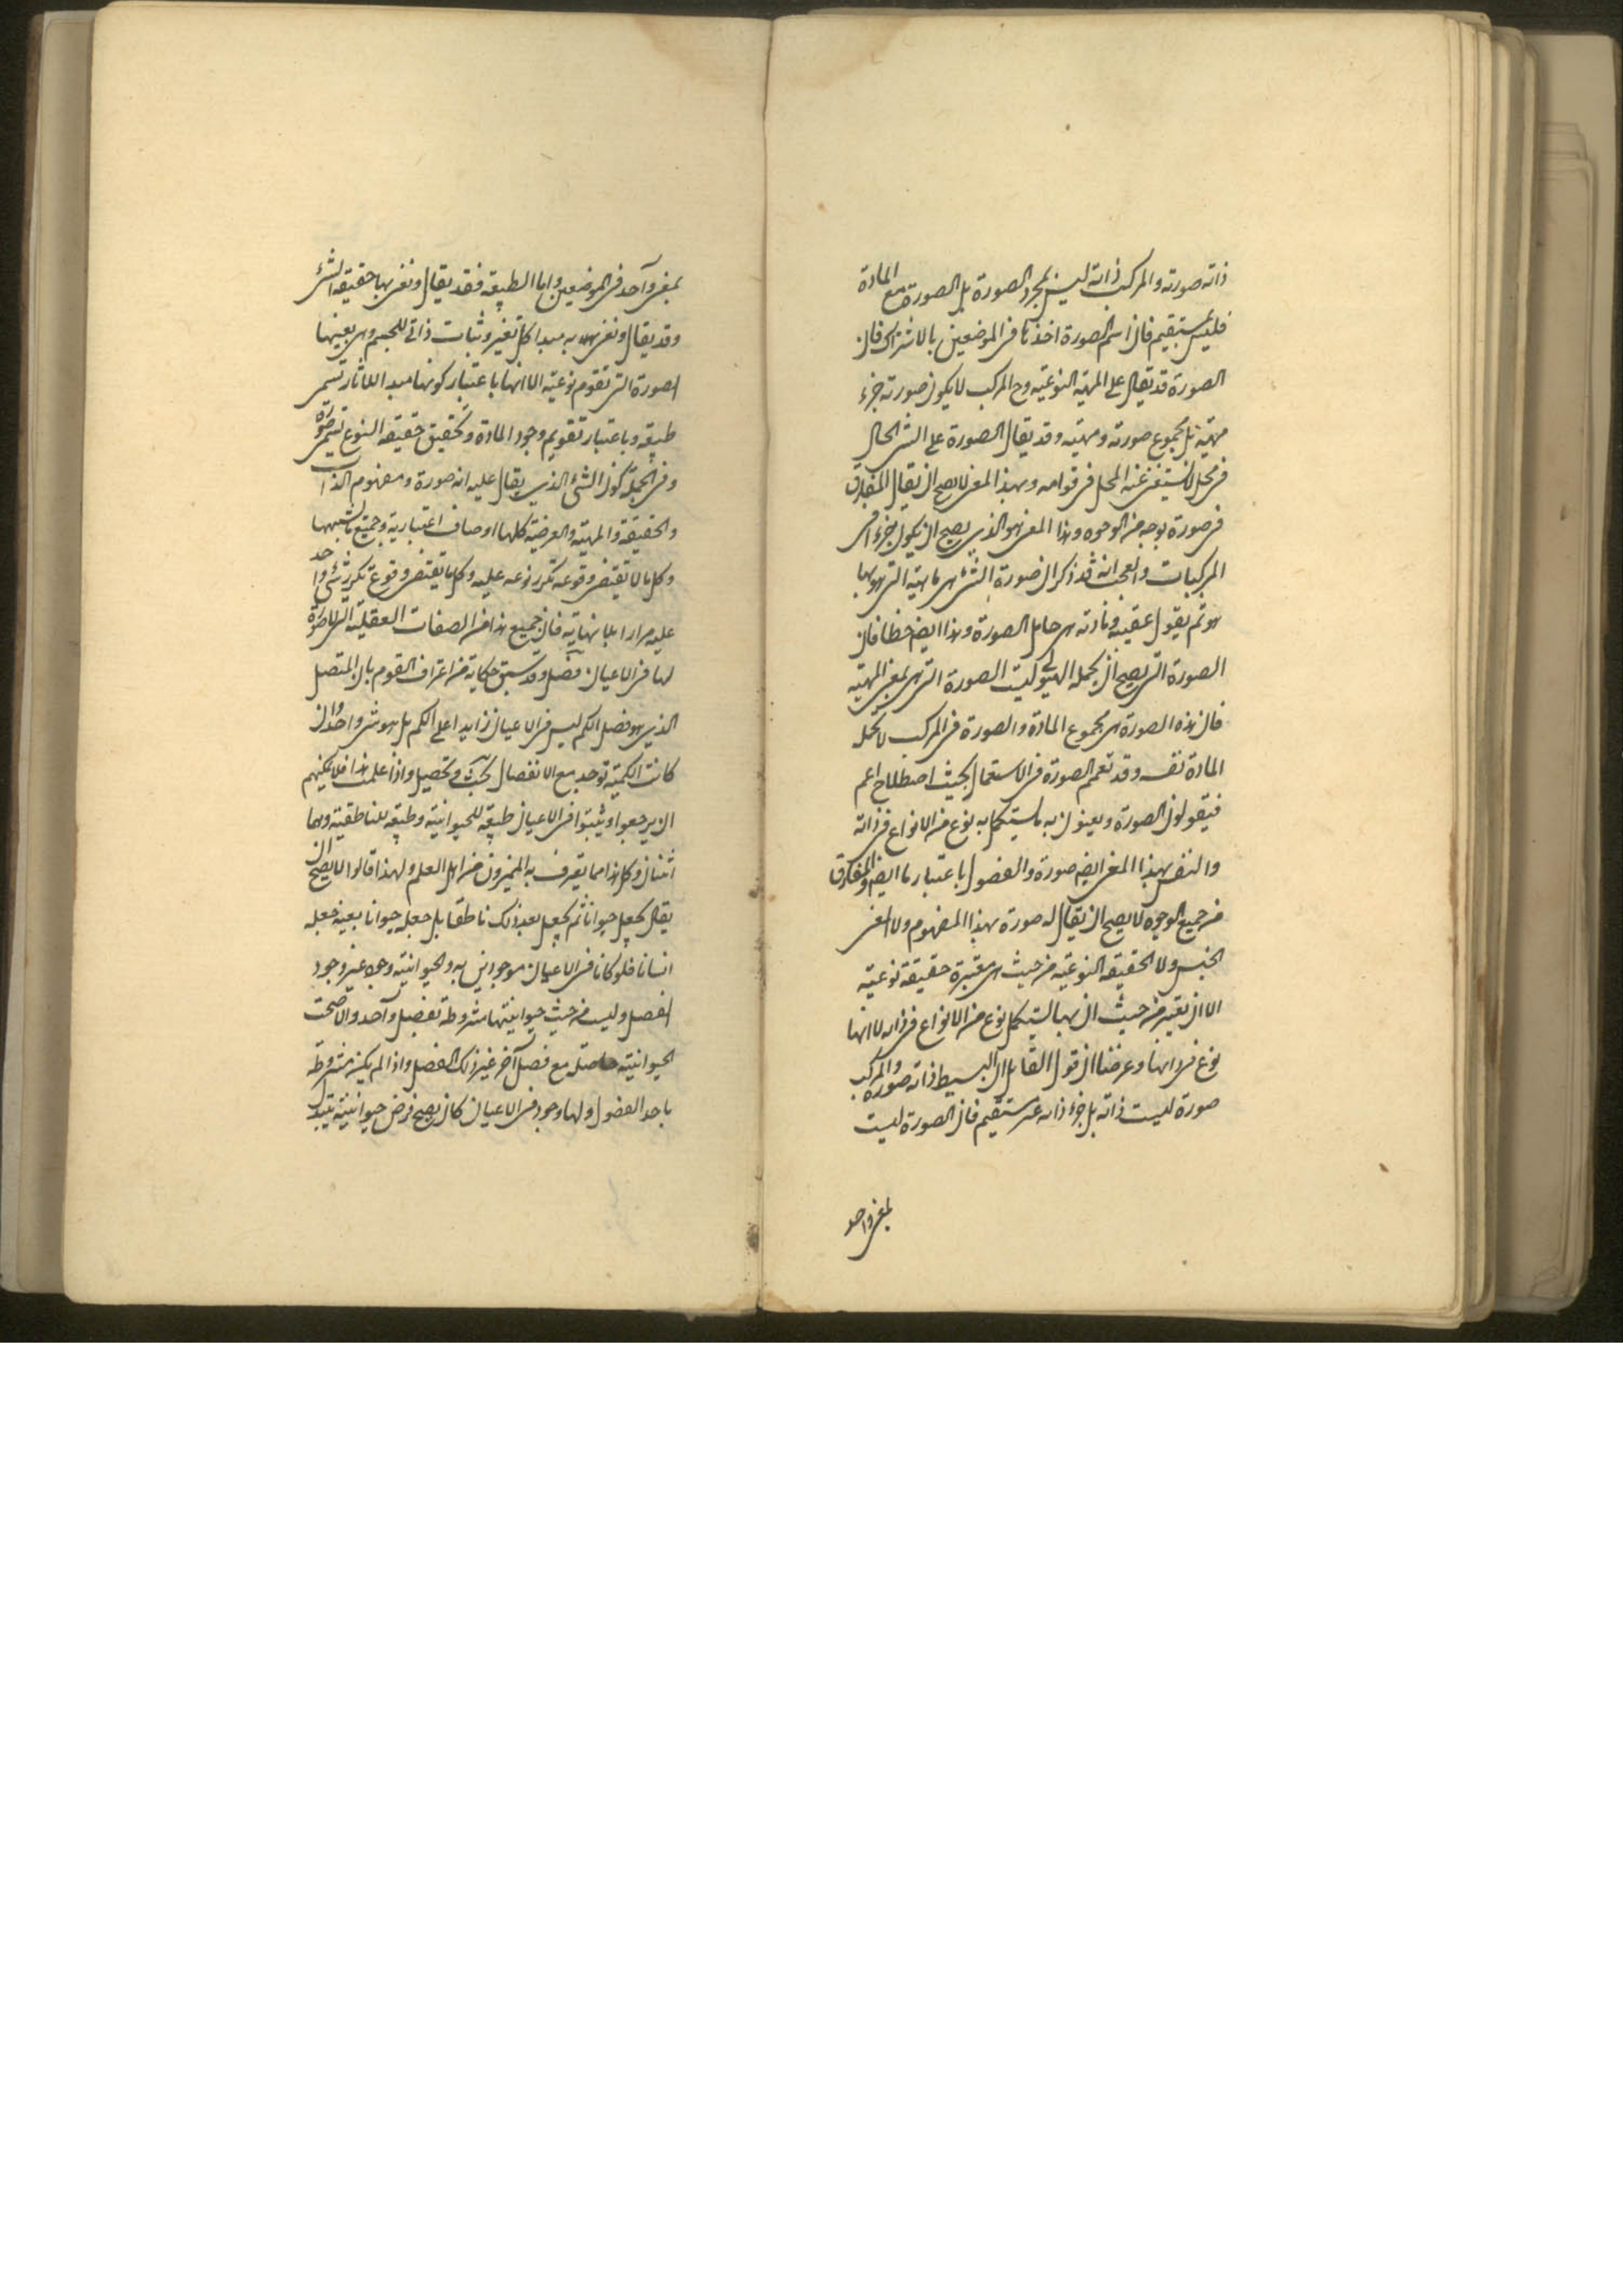 ذاته صورته والمركب ذاته ليس لمجرد الصورة بل الصورة مع المادة
فليس بمستقيم فان اسم الصورة اخذتا فى الموضعين بالاشتراك فان
الصورة قد يقال على المهية النوعية وح المركب لا يكون صورته جزء
مهيته بل مجموع صورته ومهيته وقد يقال الصورة على الشئ الحال
فى محل لا يستغنى عنه المحل فى قوامه وبهذا المعنى لا يصح ان يقال المفارق
صورة بوجه من الوجوه وهذا المعنى هو الذى يصح ان يكون جزءا فى
المركبات والعجب انه قد ذكر ان صورة الشئ هى ماهيته التى هو بها
هو ثم يقول عقيبه ومادته هى حامل الصورة وهذا ايضا خطا فان
الصورة التى يصح ان يحمله الهيولى ليست الصورة التى هى بمعنى المهية
فان هذه الصورة هى مجموع المادة والصورة فى المركب لا يحمله
المادة نفسه وقد تعمم الصورة فى الاستعمال بحيث اصطلاح اعم
فيقولون الصورة ويعنون به ما يستكمل به نوع من الانواع فى ذاته
والنفس بهذا المعنى ايضا صورة والفصول باعتبار ما ايضا والمفارق
من جميع الوجوه لا يصح ان يقال له صورة بهذا المفهوم ولا معنى
الجنس ولا الحقيقة النوعية من حيث هى معتبرة حقيقة نوعية
الا ان تعتبر من حيث ان بها يستكمل نوع من الانواع فى ذاته لا انها
نوع فى ذاتها وعرضنا ان قول القائل ان البسيط ذاته صورة والمركب
صورة ليست ذاته بل جزء ذاته غير مستقيم فان الصورة ليست
بمعنى واحد
بمعنى واحد فى الموضعين واما الطبيعة فقد يقال ونعنى بها حقيقة الشئ
وقد يقال ونعنى به مبدا كل تغير وثبات ذاتى للجسم وهى بعينها
الصورة التى تقوم نوعيته الا انها باعتبار كونها مبدا للاثار تسمى
طبيعة وباعتبار تقويم وجود المادة وتحقيق حقيقة النوع تسمى صورة
وفى الجملة كون الشئ الذى يقال عليه انه صورة ومفهوم الذات
والحقيقة والمهية والعرضية كلها اوصاف اعتبارية وجميع ما يشبهها
وكل ما لا يقتضى وقوعه تكرر نوعه عليه وكل ما يقتضى وقوع تكرر شئ واحد
عليه مرارا بلا نهاية فان جميع هذا من الصفات العقلية التى لا صورة
لها فى الاعيان فصل وقد سبق حكاية من اعتراف القوم بان المتصل
الذى هو فصل الكم ليس فى الاعيان زايدا على الكم بل هو شئ واحد وان
كانت الكمية توجد مع الانفصال بحث وتحصيل واذا علمت هذا فلا يمكنهم
ان يرجعوا ويثبتوا فى الاعيان طبيعة للحيوانية وطبيعة للناطقية وهما
اثنان وكل هذا مما يعترف به المميزون من اهل العلم ولهذا قالوا لا يصح ان
يقال يجعل حيوانا ثم يجعل بعد ذلك ناطقا بل جعله حيوانا بعينه جعله
انسانا فلو كانا فى الاعيان موجودين به والحيوانية وجود غير وجود
الفصل وليست من حيث حيوانيتها مشروطة بفصل واحد والا صحت
الحيوانية حاصلة مع فصل آخر غير ذلك الفصل واذا لم يكن مشروطة
باحد الفصول ولها وجود فى الاعيان كان يصح فرض حيوانية يتبدل